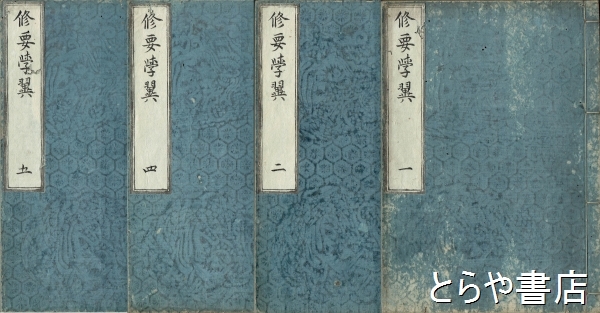 修要學翼 一
修要學翼 二
修要學翼 四
修要學翼 五
とらや書店